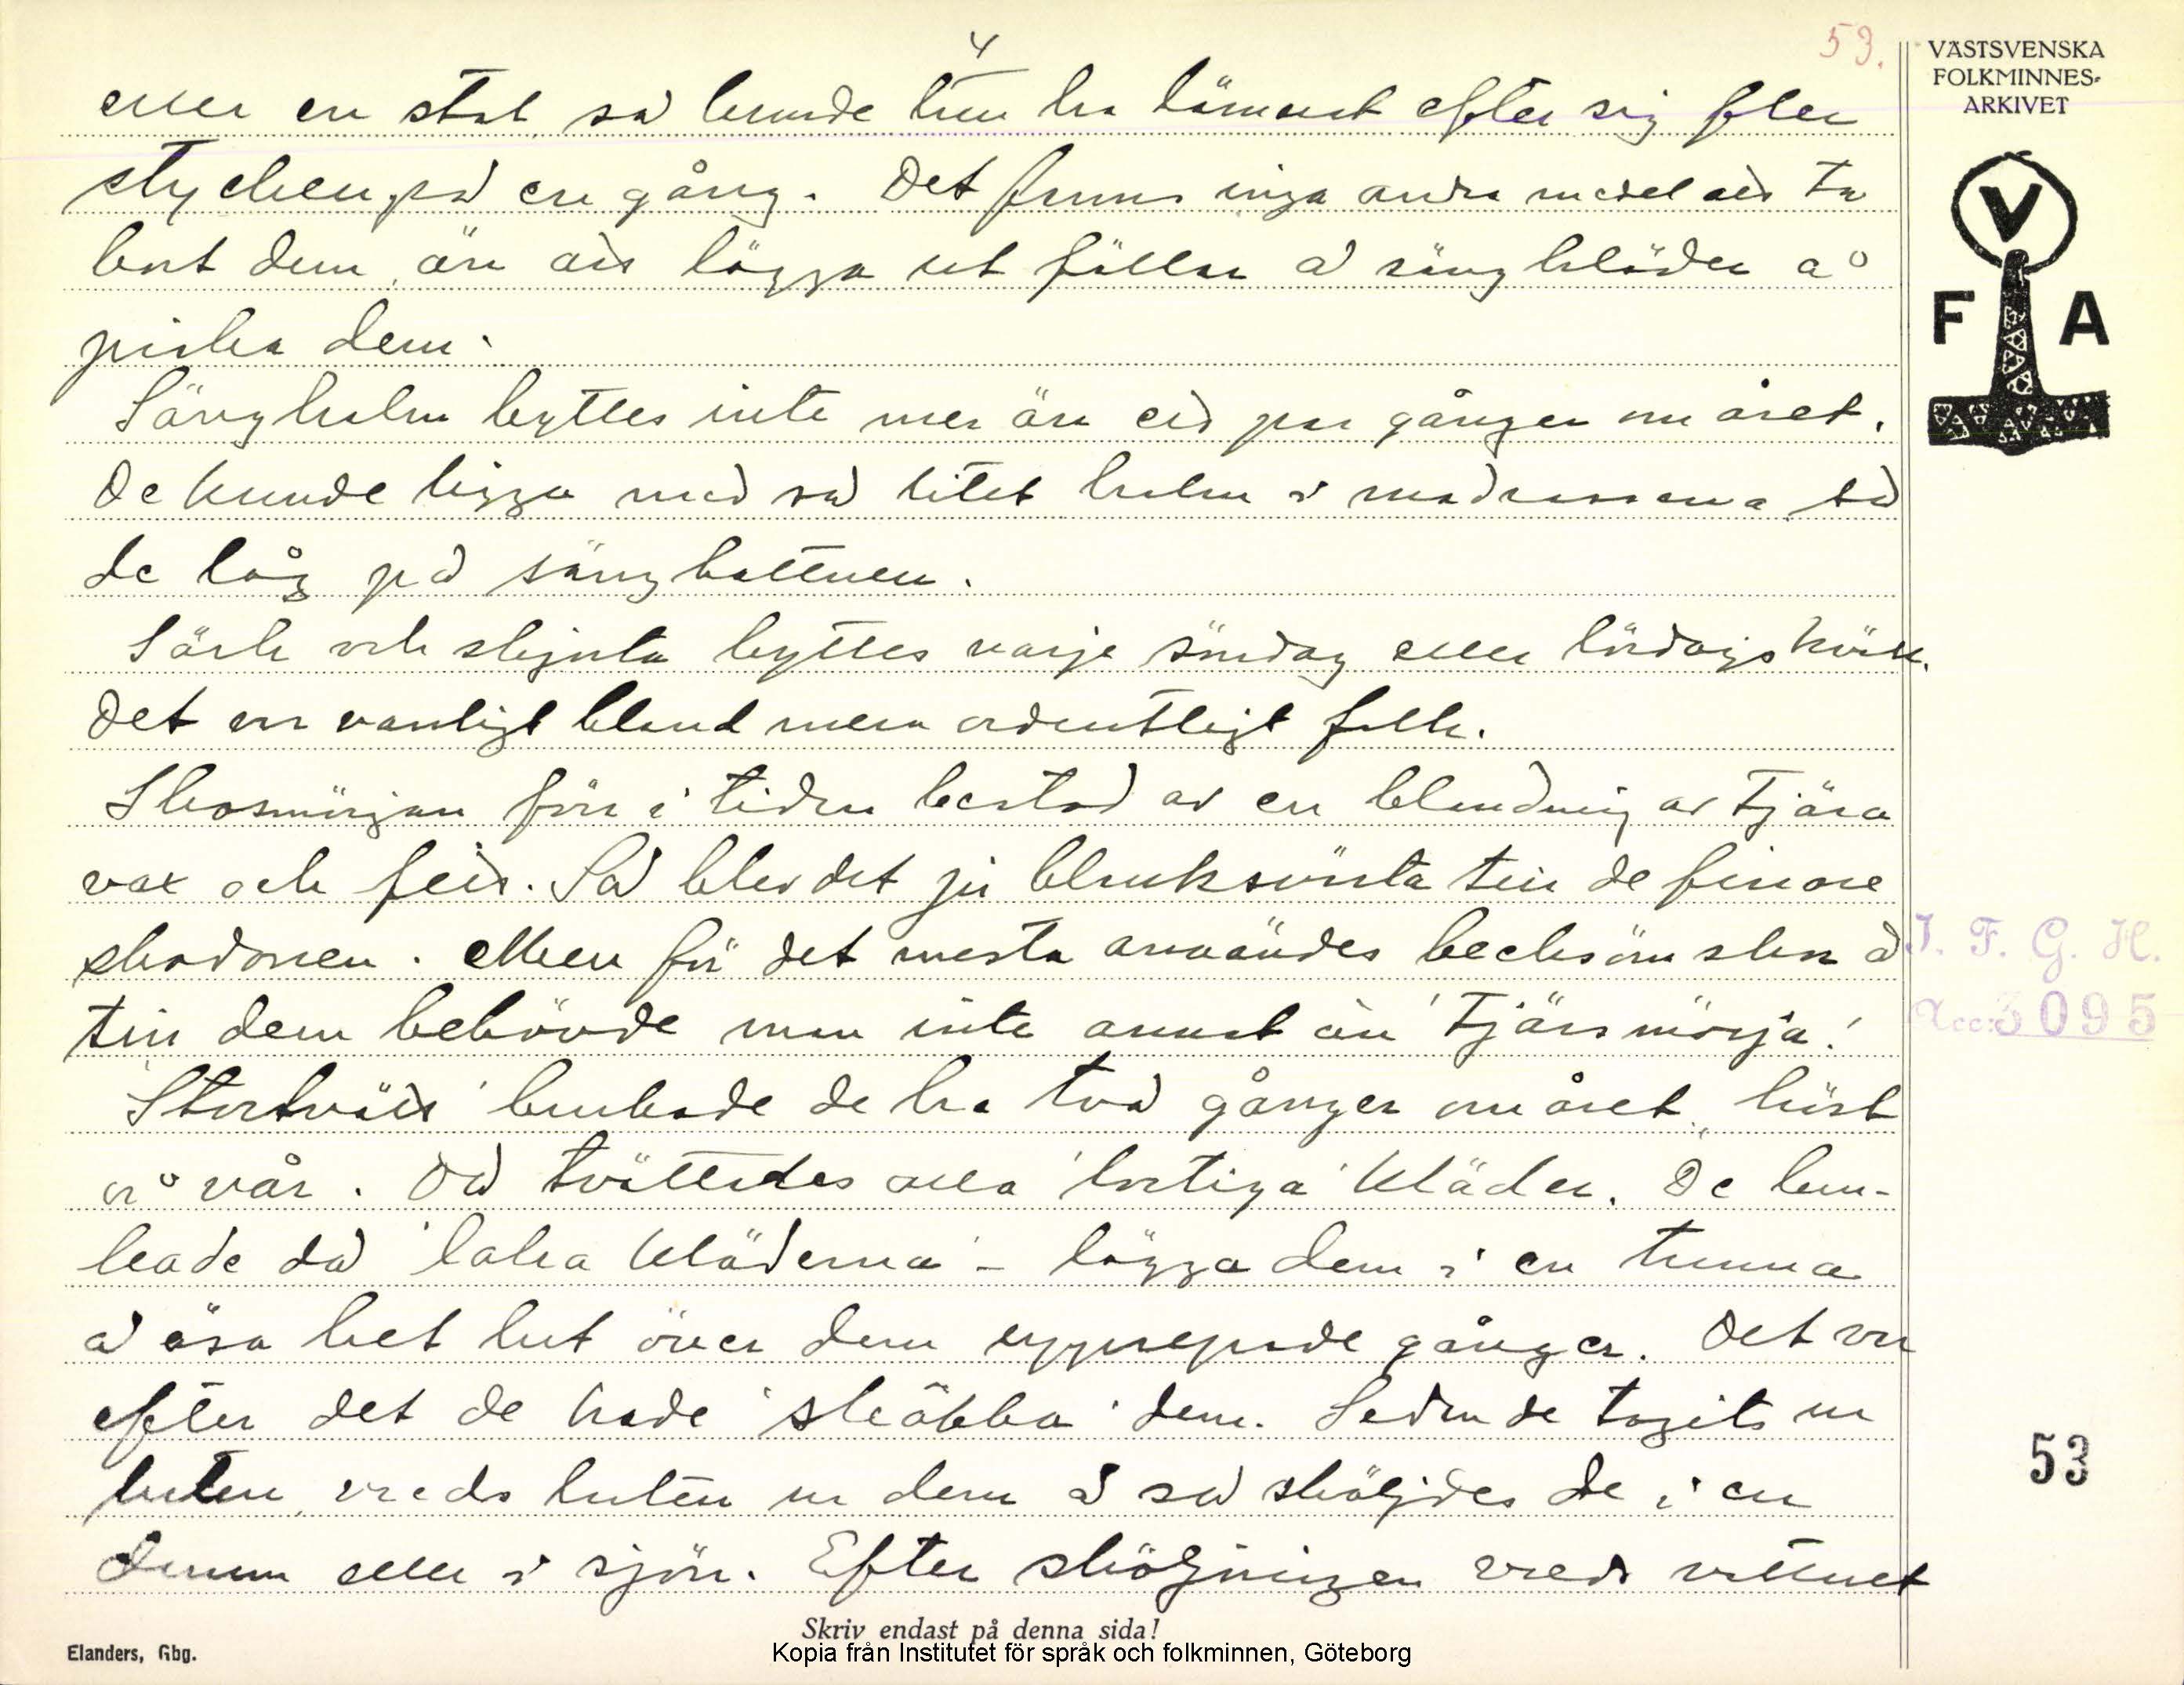 4
53.
VÄSTSVENSKA
FOLKMINNES-
ARKIVET
eller en stol så kunde hun ha lämnat efter sig fler
stycken på en gång. Det fanns inga andra medel att ta
bort dem, än att lägga ut fällar å sängkläder å
piska dem.
Sänghalm byttes inte mer än ett par gånger om året.
De kunde ligga med så litet halm i madrasserna så
de låg på sängbottnen.
Särk och skjorta byttes varje söndag eller lördagskväll.
Det var vanligt bland mera ordentligt folk.
Skosmörjan förr i tiden bestod av en blandning av tjära
vax och fett. Så blev det ju blanksvärta till de finare
skodonen. Men för det mesta användes becksömsskor å
till dem behövde man inte annat än 'tjärsmörja'.
'Stortvätt' brukade de ha två gånger om året, höst
å vår. Då tvättades alla 'lortiga' kläder. De bru-
kade då 'laka kläderna' - lägga dem i en tunna
å ösa het lut över dem upprepade gånger. Det var
efter det de hade 'skôbba' dem. Sedan de tagits ur
luten, vreds luten ur dem å så sköljdes de i en
damm eller i sjön. Efter sköljningen vreds vattnet
V
F A
I. F. G. H.
Acc: 3095
53
Skriv endast på denna sida!
Elanders, Gbg.
Kopia från Institutet för språk och folkminnen, Göteborg